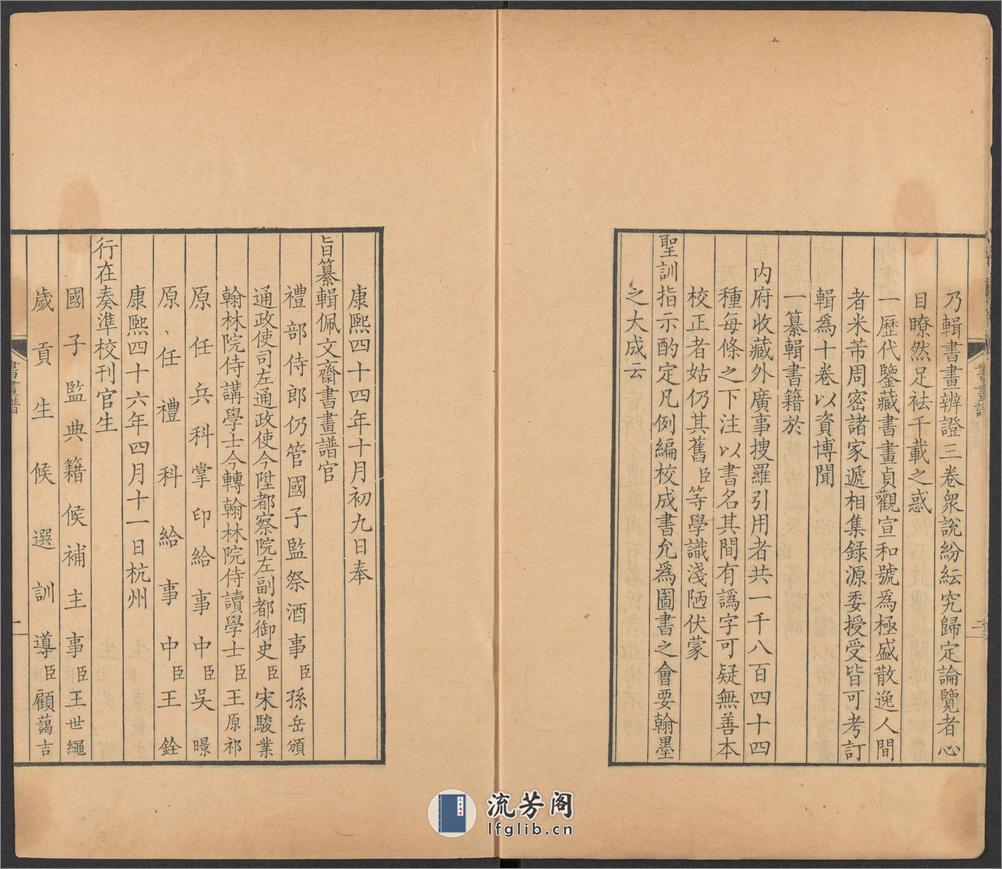 乃輯書畫辨證三卷衆說紛紜究歸定論覽者心
目瞭然足祛千載之惑
一歷代鑒藏書畫貞觀宣和號為極盛散逸人間
者米芾周密諸家遞相集錄源委授受皆可考訂
輯為十卷以資博聞
一纂輯書籍於
內府收藏外廣事搜羅引用者共一千八百四十四
種每條之下注以書名其間有譌字可疑無善本
校正者姑仍其舊臣等學識淺陋伏蒙
聖訓指示酌定凡例編校成書允為圖書之會要翰墨
之大成云
康熙四十四年十月初九日奉
旨纂輯佩文齋書畫譜官
禮部侍郎仍管國子監祭酒事臣孫岳頒
通政使司左通政使今陞都察院左副都御史臣宋駿業
翰林院侍講學士今轉翰林院侍讀學士臣王原祁
原任兵科掌印給事中臣吳暻
原任禮科給事中臣王銓
康熙四十六年四月十一日杭州
行在奏準校刊官生
國子監典籍候補主事臣王世繩
歲貢生候選訓導臣顧藹吉
書畫譜
二
流芳阁
lfglib.cn